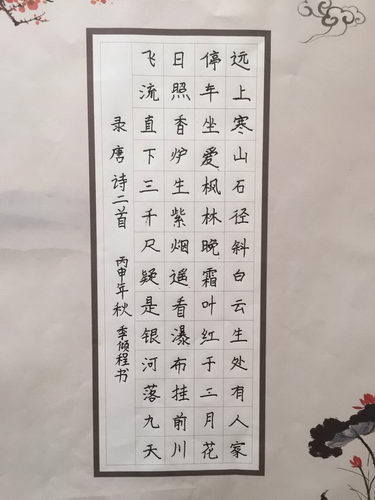 远上寒山石径斜白云生处有人家
停车坐爱枫林晚霜叶红于二月花
日照香炉生紫烟遥看瀑布挂前川
飞流直下三千尺疑是银河落九天
录唐诗二首 丙申年秋 季倾程书